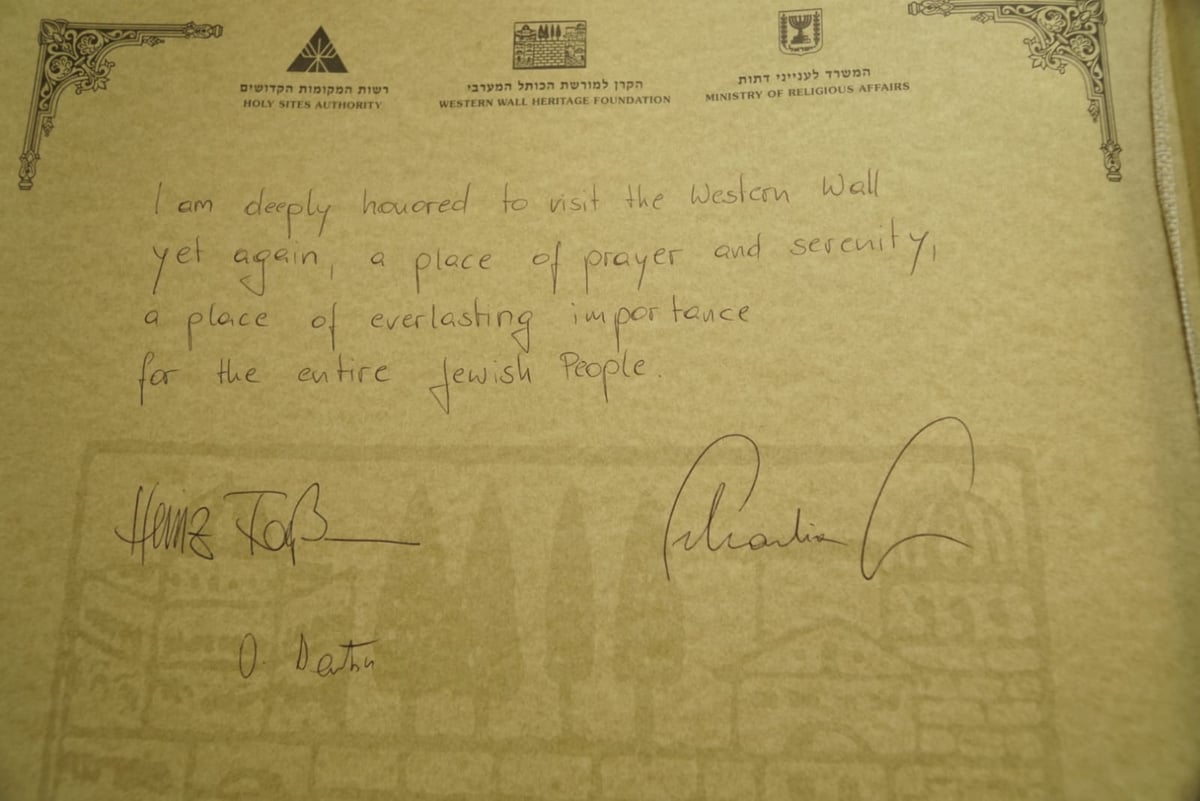 רשות המקומות הקדושים
HOLY SITES AUTHORITY
הקרן למורשת הכותל המערבי
WESTERN WALL HERITAGE FOUNDATION
ישראל
המשרד לענייני דתות
MINISTRY OF RELIGIOUS AFFAIRS
I am deeply honored to visit the Western Wall
yet again, a place of prayer and serenity,
a place of everlasting importance
for the entire Jewish People.
Heinz